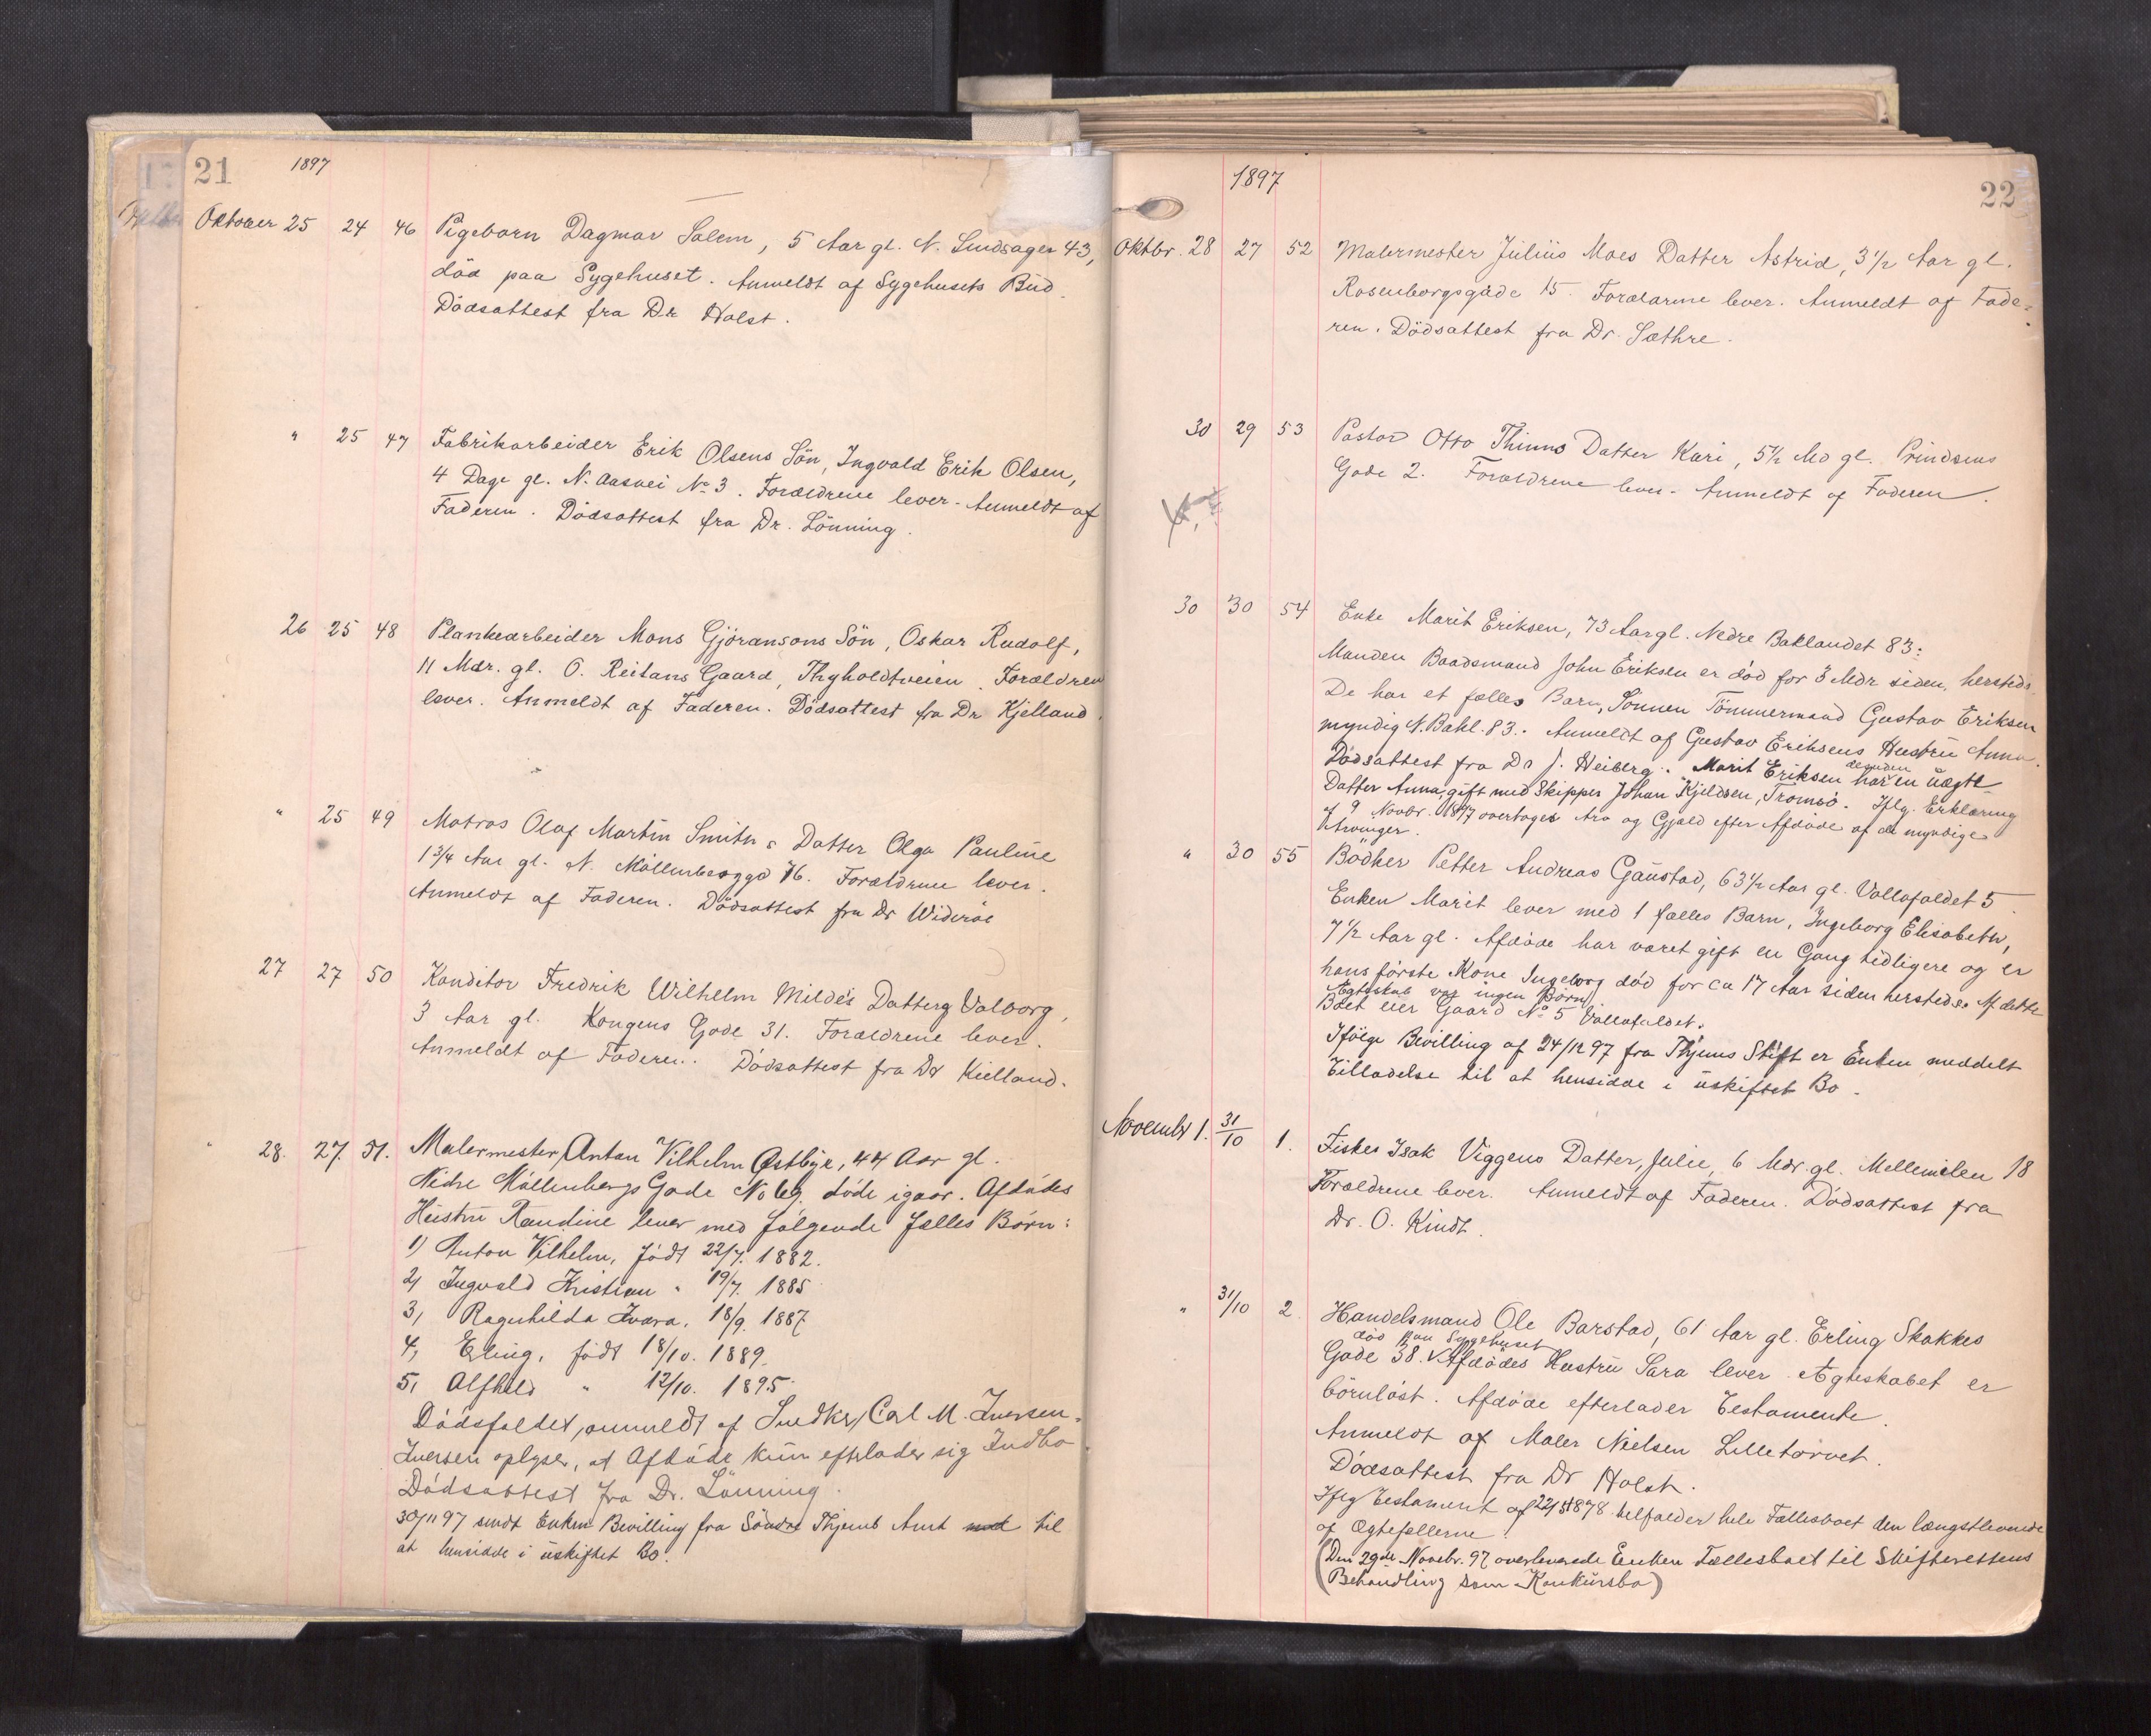 21 1897
Oktober 25 24 46 Pigebarn Dagmar Salem, 5 Aar gl. N. 43,
död paa Sygehuset. Anmeldt af Sygehusets Bud.
Dödsattest fra Dr Holst.
" 25 47 Fabrikarbeider Erik Olsens Sön, Ingvald Erik Olsen,
4 Dage gl. N. Aasvei No 3. Forældrene lever. Anmeldt af
Faderen. Dödsattest fra Dr. Lönning.
26 25 48 Plankearbeider Mons Gjöransons Sön, Oskar Rudolf,
11 Mdr. gl. O. Reitans Gaard, Thyholdtveien. Forældren
lever. Anmeldt af Faderen. Dödsattest fra Dr Kjelland.
" 25 49 Matros Olaf Martin Smiths Datter Olga Pauline
1 3/4 Aar gl. N. Möllenberggd 76. Forældrene lever.
Anmeldt af Faderen. Dödsattest fra Dr Wideröe
27 27 50 Konditor Fredrik Wilhelm Milde's Datter Valborg,
3 Aar gl. Kongens Gade 31. Forældrene lever.
Anmeldt af Faderen. Dödsattest fra Dr Kielland.
" 28. 27. 51. Malermester Anton Vilhelm Østbye, 44 Aar gl.
Nedre Möllenbergs Gade No 69. döde igaar. Afdödes
Hustru Randine lever med følgende fælles Börn:
1) Anton Vilhelm, födt 22/7. 1882.
2, Ingvald Kristian " 19/7. 1885
3, Ragnhilda Ivara, 18/9. 1887
4, Erling, födt 18/10. 1889.
5, Alfhild " 12/10. 1895.
Dödsfaldet anmeldt af Snedker Carl M. Iversen.
Iversen oplyser, at Afdöde kun efterlader sig Indbo.
Dödsattest fra Dr. Lönning.
30/11 97 sendt Enken Bevilling fra Söndre Thjems Amt til
at hensidde i uskiftet Bo.
1897 22
Oktbr. 28 27 52 Malermester Julius Moes Datter Astrid, 3 1/2 Aar gl.
Rosenborgsgade 15. Forældrene lever. Anmeldt af Fade-
ren. Dödsattest fra Dr. Sæthre.
30 29 53 Pastor Otto Thinns Datter Kari, 5 1/2 Md gl. Prindsens
Gade 2. Forældrene lever. Anmeldt af Faderen.
30 30 54 Enke Marit Eriksen, 73 Aar gl. Nedre Baklandet 83.
Manden Baadsmand John Eriksen er död for 3 Mdr siden, hersteds.
De har et fælles Barn, Sönnen Tömmermand Gustav Eriksen
myndig N. Bakl. 83. Anmeldt af Gustav Eriksens Hustru Anna.
Dödsattest fra Dr J. Heiberg. Marit Eriksen har desuden en uægte
Datter Anna, gift med Skipper Johan Kjeldsen, Tromsö. Iflg. Erklæring
af 9 Novbr. 1897 overtages Arv og Gjæld efter Afdöde af de myndige
Arvinger.
" 30 55 Bödker Petter Andreas Gaustad, 63 1/2 Aar gl. Vollafaldet 5.
Enken Marit lever med 1 fælles Barn, Ingeborg Elisabeth,
7 1/2 Aar gl. Afdöde har været gift en Gang tidligere og er
hans förste Kone Ingeborg död for ca 17 Aar siden hersteds. Af dette
Ægteskab var ingen Börn.
Boet eier Gaard No 5 Vollafaldet.
Ifölge Bevilling af 24/12 97 fra Thjems Stift er Enken meddelt
Tilladelse til at hensidde i uskiftet Bo.
Novembr 1. 31/10 1. Fisker Isak Viggens Datter, Julie, 6 Mdr. gl. Mellemilen 18
Forældrene lever. Anmeldt af Faderen. Dödsattest fra
Dr. O. Kindt.
" 31/10 2. Handelsmand Ole Barstad, 61 Aar gl. Erling Skakkes
död paa Sygehuset
Gade 38. Afdödes Hustru Sara lever. Ægteskabet er
börnlöst. Afdöde efterlader Testamente.
Anmeldt af Maler Nielsen Lilletorvet.
Dödsattest fra Dr Holst.
Iflg Testament af 22/5 1878 tilfalder hele Fællesboet den længstlevende
af Ægtefællerne.
(Den 29de Novbr. 97 overleverede Enken Fællesboet til Skifterettens
Behandling som Konkursbo)